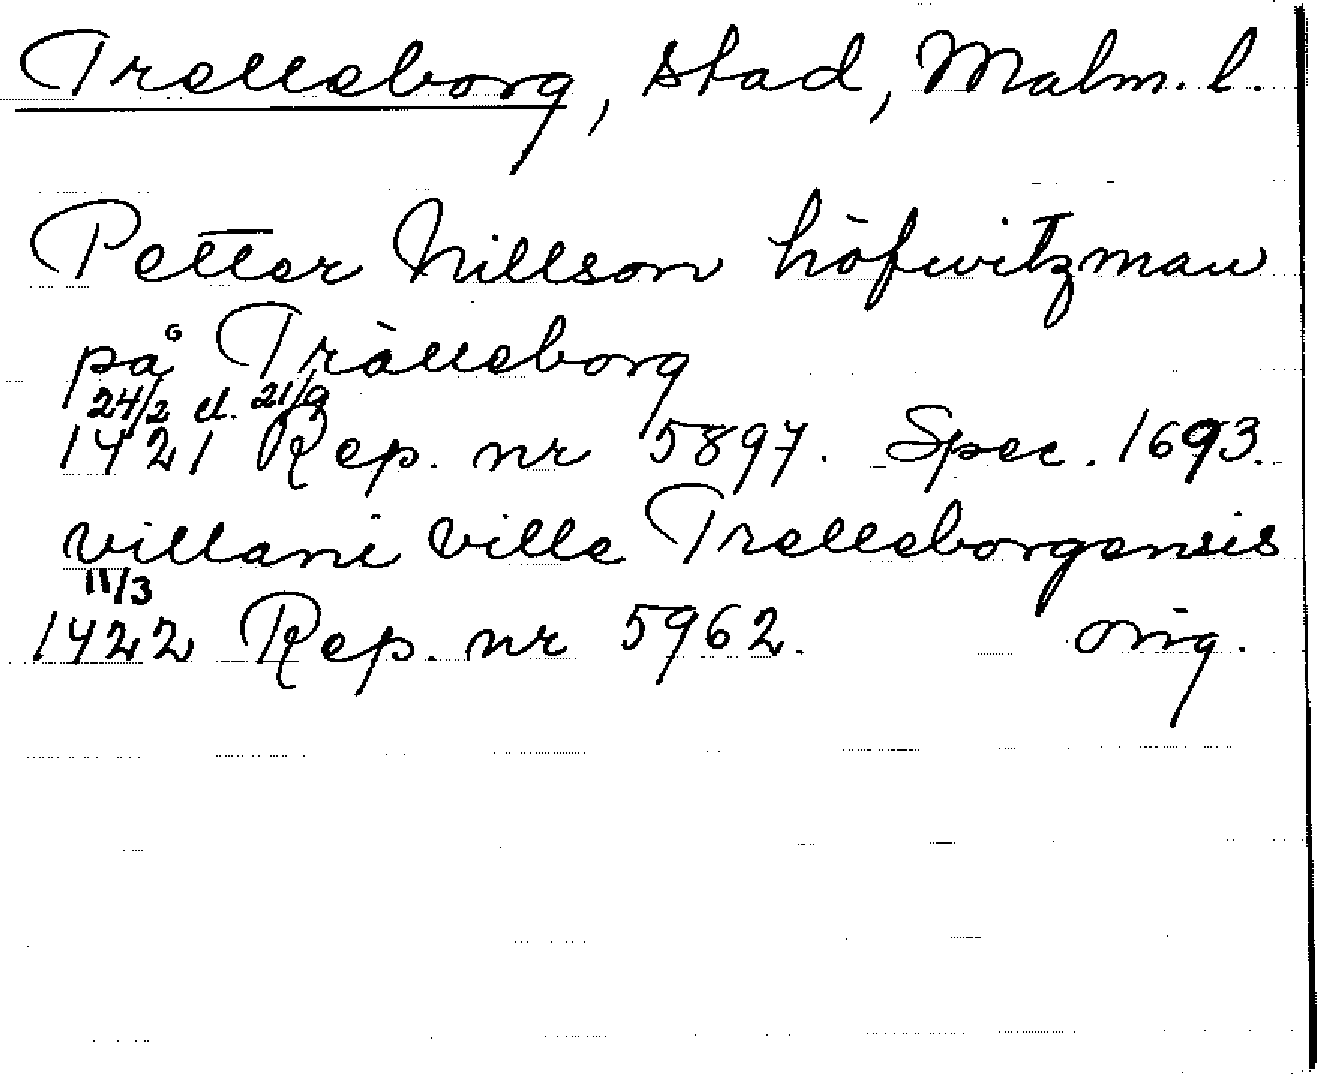 Trelleborg, stad, Malm. l.
Petter Nillson höfwitzman
på Trälleborg
24/2 el. 21/9
1421 Rep. nr 5897. Spec. 1693.
villani ville Trelleborgensis
11/3
1422 Rep. nr 5962. orig.